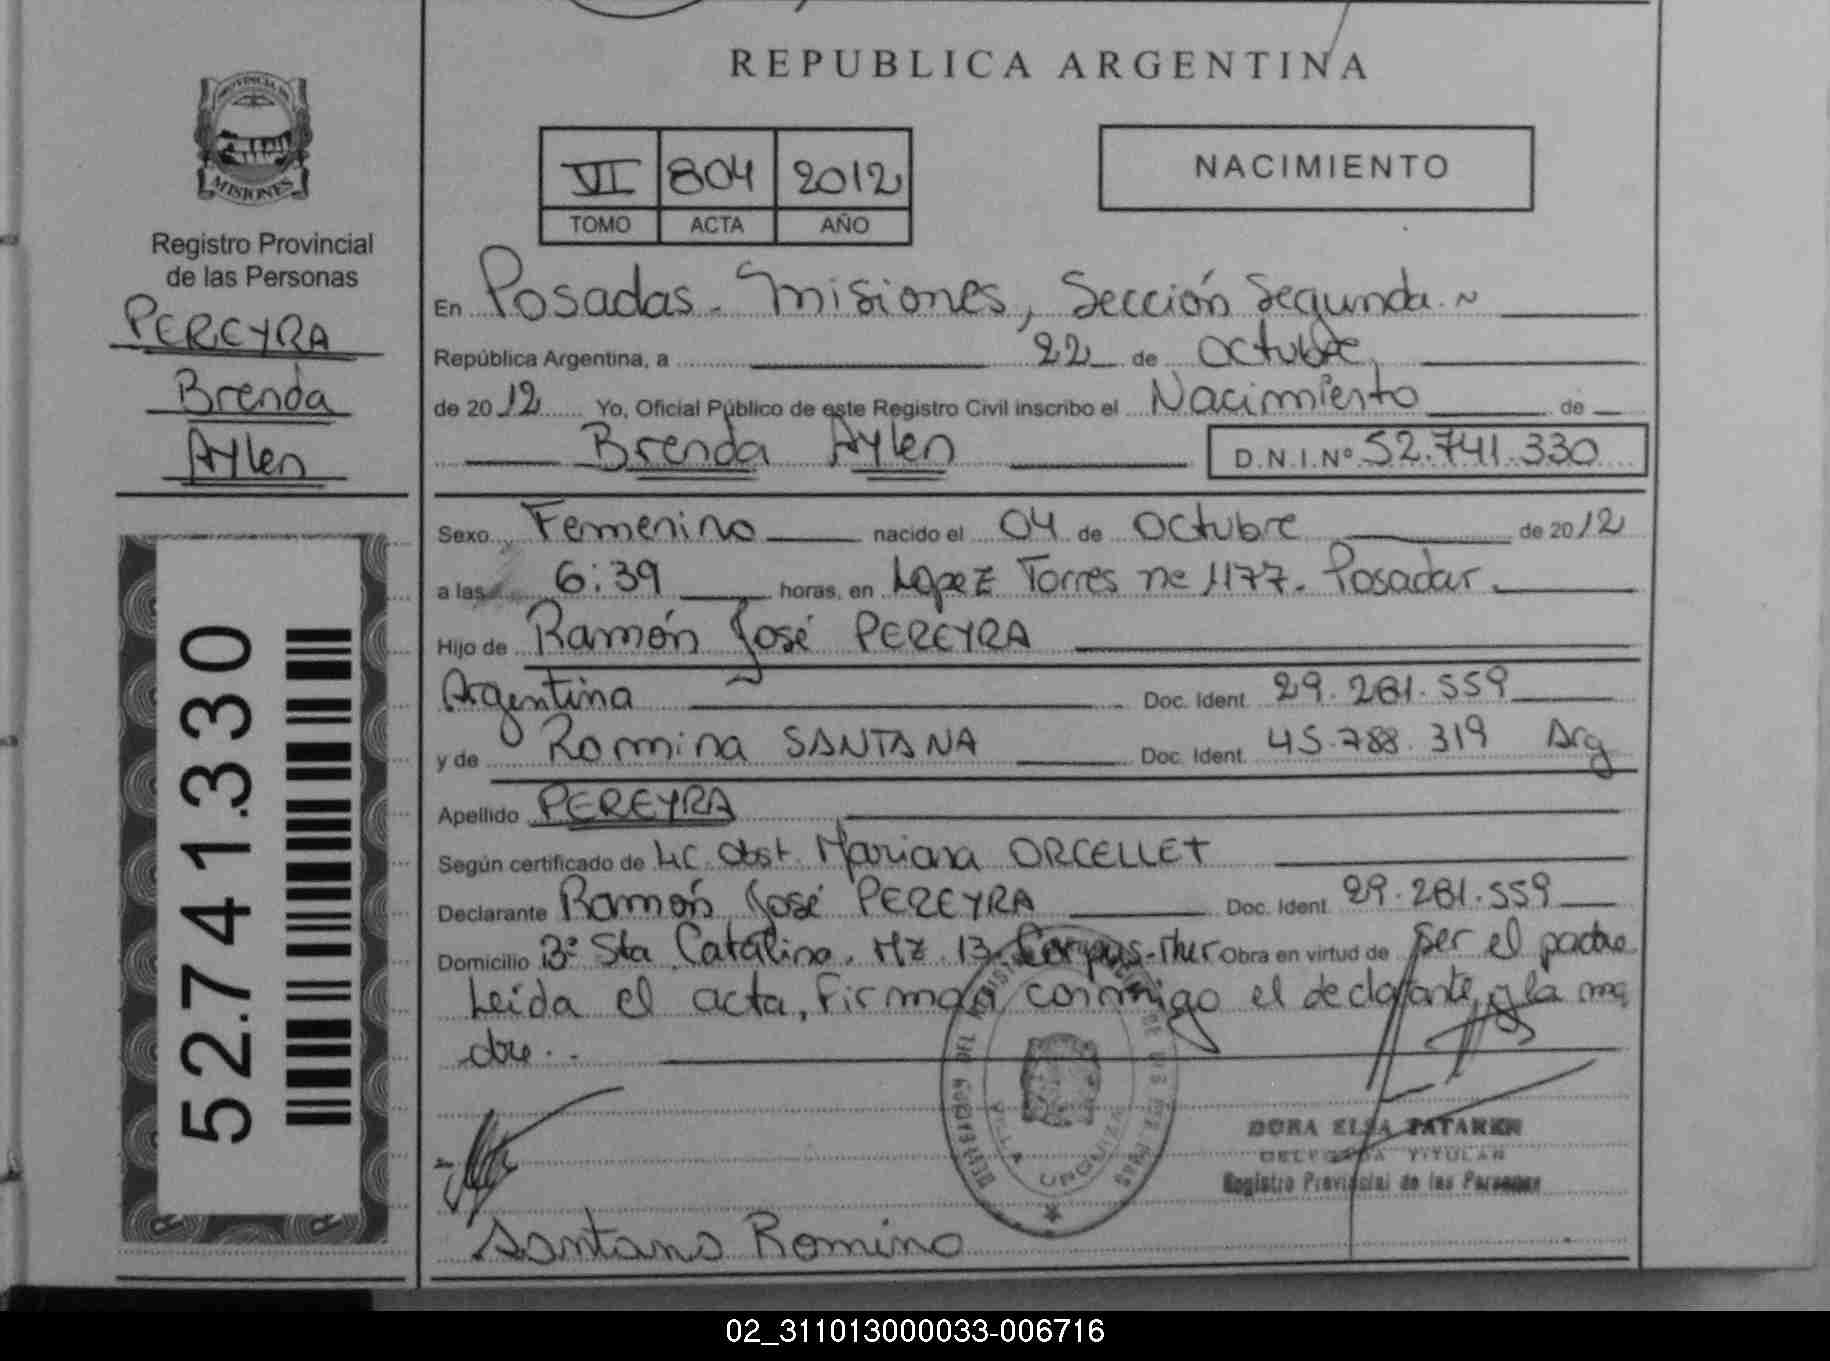 REPUBLICA ARGENTINA
PROVINCIA DE
MISIONES
Registro Provincial
de las Personas
PEREYRA
Brenda
Aylen
52.741.330
VI 804 2012
TOMO ACTA AÑO
NACIMIENTO
En Posadas - Misiones, Sección Segunda
República Argentina, a 22 de Octubre
de 2012 Yo, Oficial Público de este Registro Civil inscribo el Nacimiento de
Brenda Aylen D.N.I.Nº 52.741.330
Sexo Femenino nacido el 04 de Octubre de 2012
a las 6:39 horas, en Lopez Torres nº 1177. Posadas
Hijo de Ramón José PEREYRA
Argentina Doc. Ident. 29.281.559
y de Romina SANTANA Doc. Ident. 45.788.319 Arg
Apellido PEREYRA
Según certificado de Lic. Obst. Mariana ORCELLET
Declarante Ramón José PEREYRA Doc. Ident. 29.281.559
Domicilio Bº Sta Catalina. Mz 13 Corpus-Mnes Obra en virtud de ser el padre
Leída el acta, Firman conmigo el declarante y la ma
dre.
VILLA URQUIZA
DORA ELSA
DELEGADA TITULAR
Registro Provincial de las Personas
Santana Romina
02_311013000033-006716